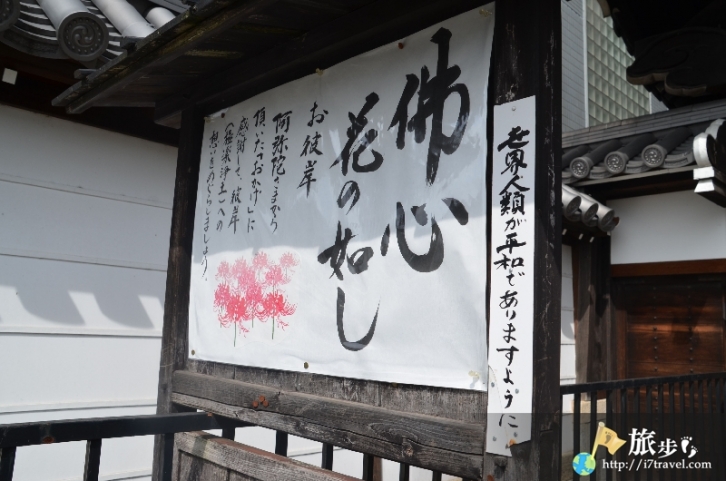 佛心
花の如し
お彼岸
阿弥陀さまから
頂いた「おかげ」に
感謝して、彼岸
(極楽浄土)への
想いをめぐらしましょう。
世界人類が平和でありますように
旅步
http://i7travel.com